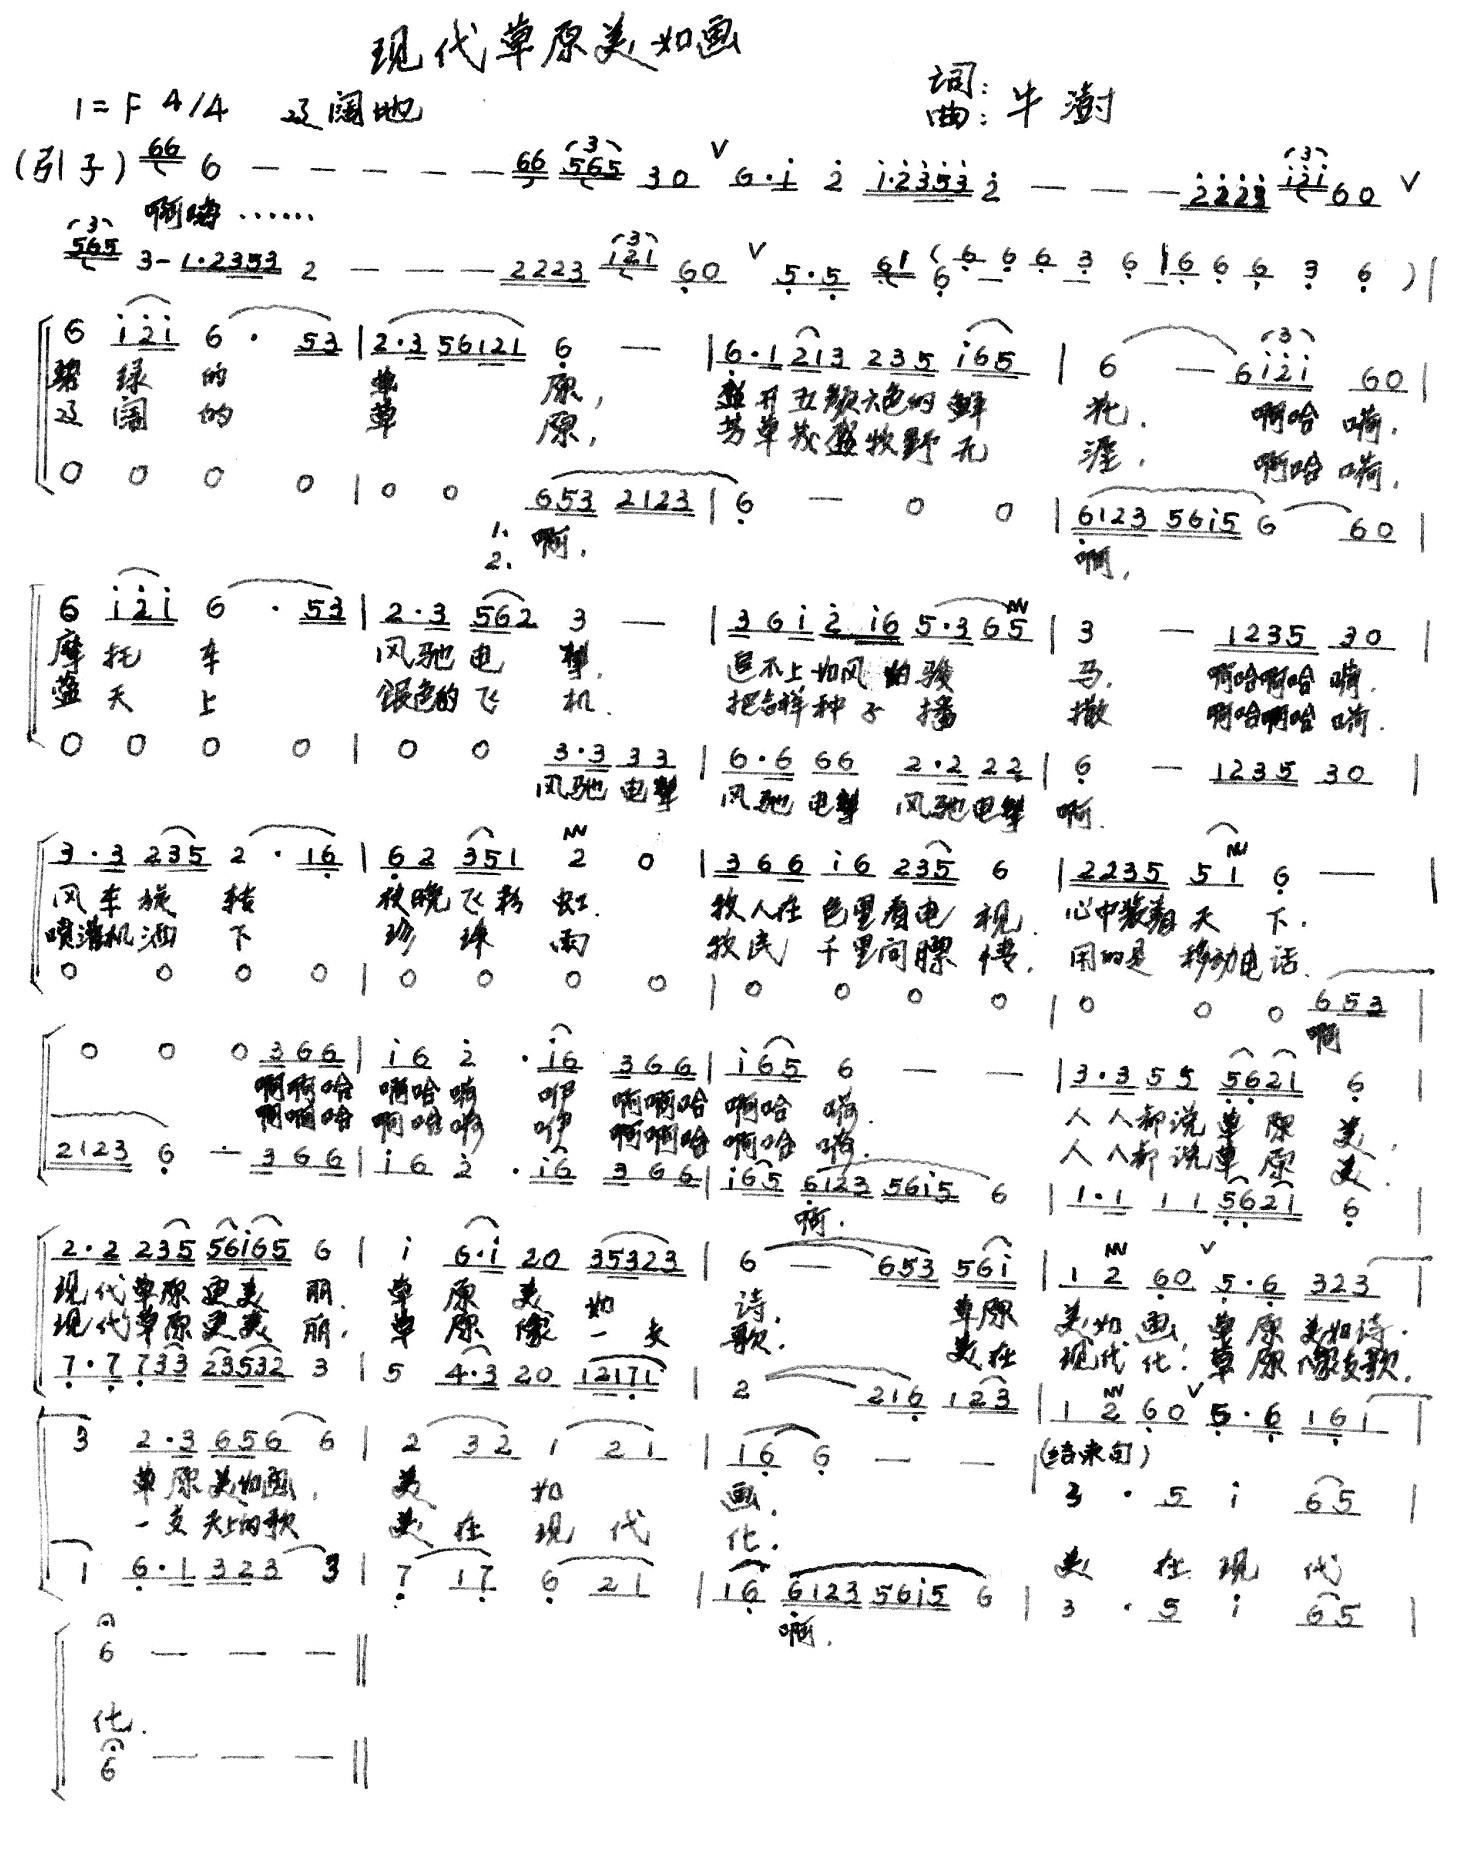 现代草原美如画
词:
1=F 4/4 辽阔地
曲: 牛澍
(引子) 66 6 — — — — — 66 565 30 V 6·i 2 i·2353 2 — — — 2223 i2i 60 V
啊嗬……
565 3-1·2353 2 — — — 2223 i2i 60 V 5·5 61 (6 6 6 3 6 | 6 6 6 3 6 ) |
6 i2i 6 · 53 | 2·3 56121 6 — | 6·1 213 235 i65 | 6 — 6i2i 60 |
碧绿的 草 原, 盛开五颜六色的鲜 花. 啊哈 嗬.
辽阔的 草 原, 芳草茂盛牧野无 涯. 啊哈 嗬.
0 0 0 0 | 0 0 653 2123 | 6 — 0 0 | 6123 56i5 6 60 |
1. 啊. 啊,
2.
6 i2i 6 · 53 | 2·3 562 3 — | 3 6 i 2 i6 5·3 65 | 3 — 1235 30 |
摩托车 风驰电掣. 追不上如风的骏 马. 啊哈啊哈 嗬.
蓝天上 银色的飞 机. 把吉祥种子 播 撒 啊哈啊哈 嗬.
0 0 0 0 | 0 0 3·3 33 | 6·6 66 2·2 22 | 6 — 1235 30 |
风驰 电掣 风驰 电掣 风驰电掣 啊.
3·3 235 2 · 16 | 62 351 2 0 | 366 i6 235 6 | 2235 51 6 — |
风车旋 转 夜晚飞彩 虹. 牧人在 包里看电 视. 心中装着 天 下.
喷灌机洒 下 珍 珠 雨 牧民 千里问膘 情. 用的是 移动电 话.
0 0 0 0 | 0 0 0 0 | 0 0 0 0 | 0 0 0 653 |
啊
0 0 0 366 | i6 2 · i6 366 | i65 6 — — | 3·3 55 5621 6 |
啊啊哈 啊哈嗬 咿 啊啊哈 啊哈 嗬. 人人都说 草 原 美.
啊啊哈 啊哈嗬 咿 啊啊哈 啊哈 嗬. 人人都说 草 原 美.
2123 6 — 366 | i6 2 · i6 366 | i65 6123 56i5 6 | 1·1 11 5621 6 |
啊.
2·2 235 56i65 6 | i 6·i 20 35323 | 6 — 653 56i | 1 2 60 V 5·6 323 |
现代草原更美 丽. 草 原 美 如 诗. 草原 美如画. 草原 美如诗.
现代草原更美 丽. 草 原 像 一支 歌. 美在 现代化. 草原 像支歌.
7·7 733 23532 3 | 5 4·3 20 12171 | 2 216 123 | 1 2 60 V 5·6 161 |
3 2·3 656 6 | 2 32 1 21 | 16 6 — — |
(结束句)
3 · 5 i 65 |
草原美如画, 美 如 画.
一支天上的歌 美在现代 化.
美在现代
1 6·1 323 3 | 7 17 6 21 | 16 6123 56i5 6 | 3 · 5 i 65 |
啊.
6 — — — ‖
化.
6 — — — ‖